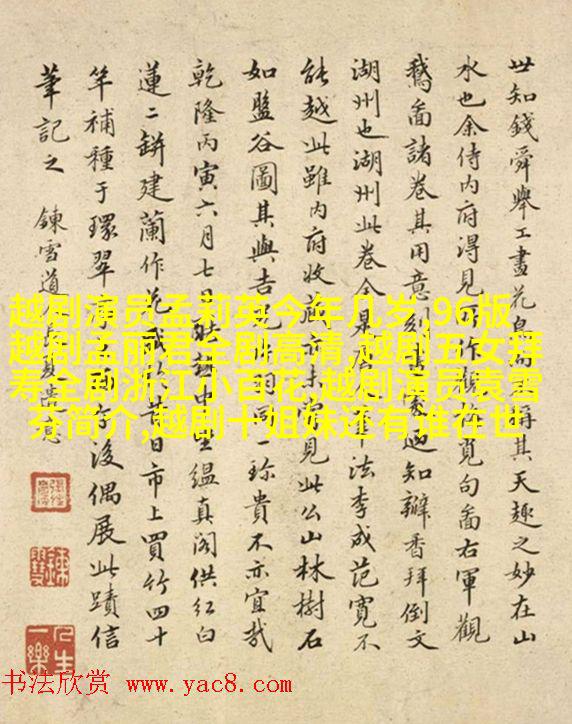 世知錢舜舉工畫花鳥稱其天趣之妙在山
水也余侍內府得見所作覓句圖右軍觀
鵝圖諸卷其用意知辦香拜倒文
湖州也湖州此卷全法李成范寬不
能越此雖內府收藏亦未嘗見此公山林樹石
如盤谷圖其與吉同一珍貴不亦宜哉
乾隆丙寅六月七日縕真閣供紅白
蓮二缾建蘭作花日市上買竹四十
竿補種于環翠後偶展此蹟信
筆記之 鍊雪道
人生一樂
越剧演员孟莉英今年几岁,96版
越剧孟丽君全剧高清,越剧五女拜
寿全剧浙江小百花,越剧演员袁雪
芬简介,越剧十姐妹还有谁在世
书法欣赏 www.yac8.com